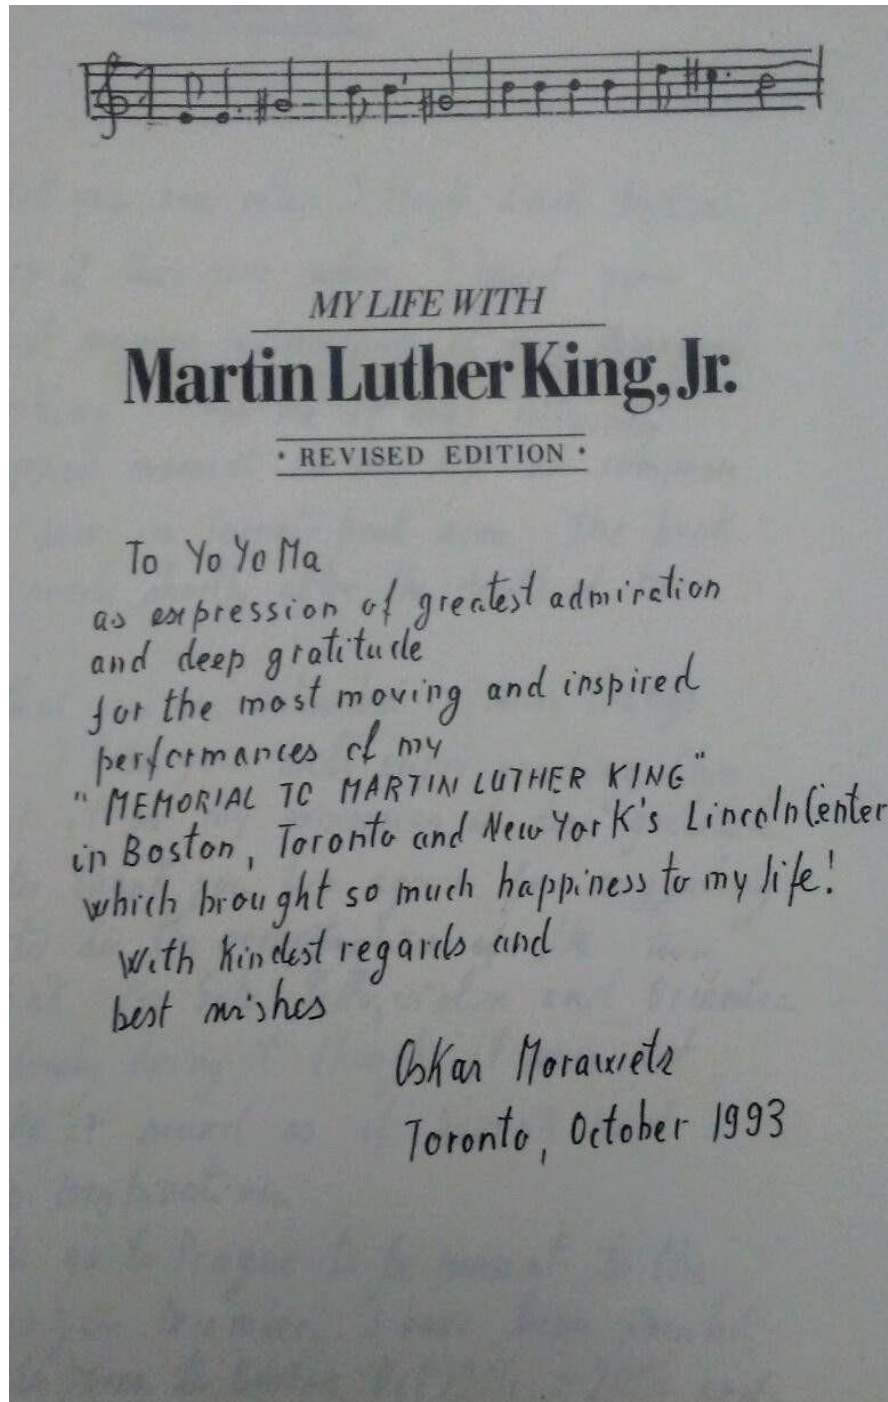 MY LIFE WITH
Martin Luther King, Jr.
• REVISED EDITION •
To Yo Yo Ma
as expression of greatest admiration
and deep gratitude
for the most moving and inspired
performances of my
"MEMORIAL TO MARTIN LUTHER KING"
in Boston, Toronto and New York's Lincoln Center
which brought so much happiness to my life!
With kindest regards and
best wishes
Oskar Morawetz
Toronto, October 1993